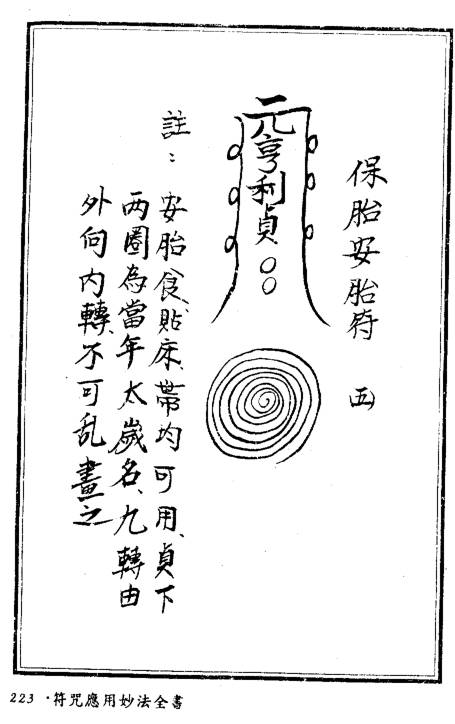 保胎安胎符 五
元亨利貞○○
註：安胎食、貼床、帶均可用、貞下
兩圈為當年太歲名、九轉由
外向內轉、不可乱畫之
223 ·符咒應用妙法全書